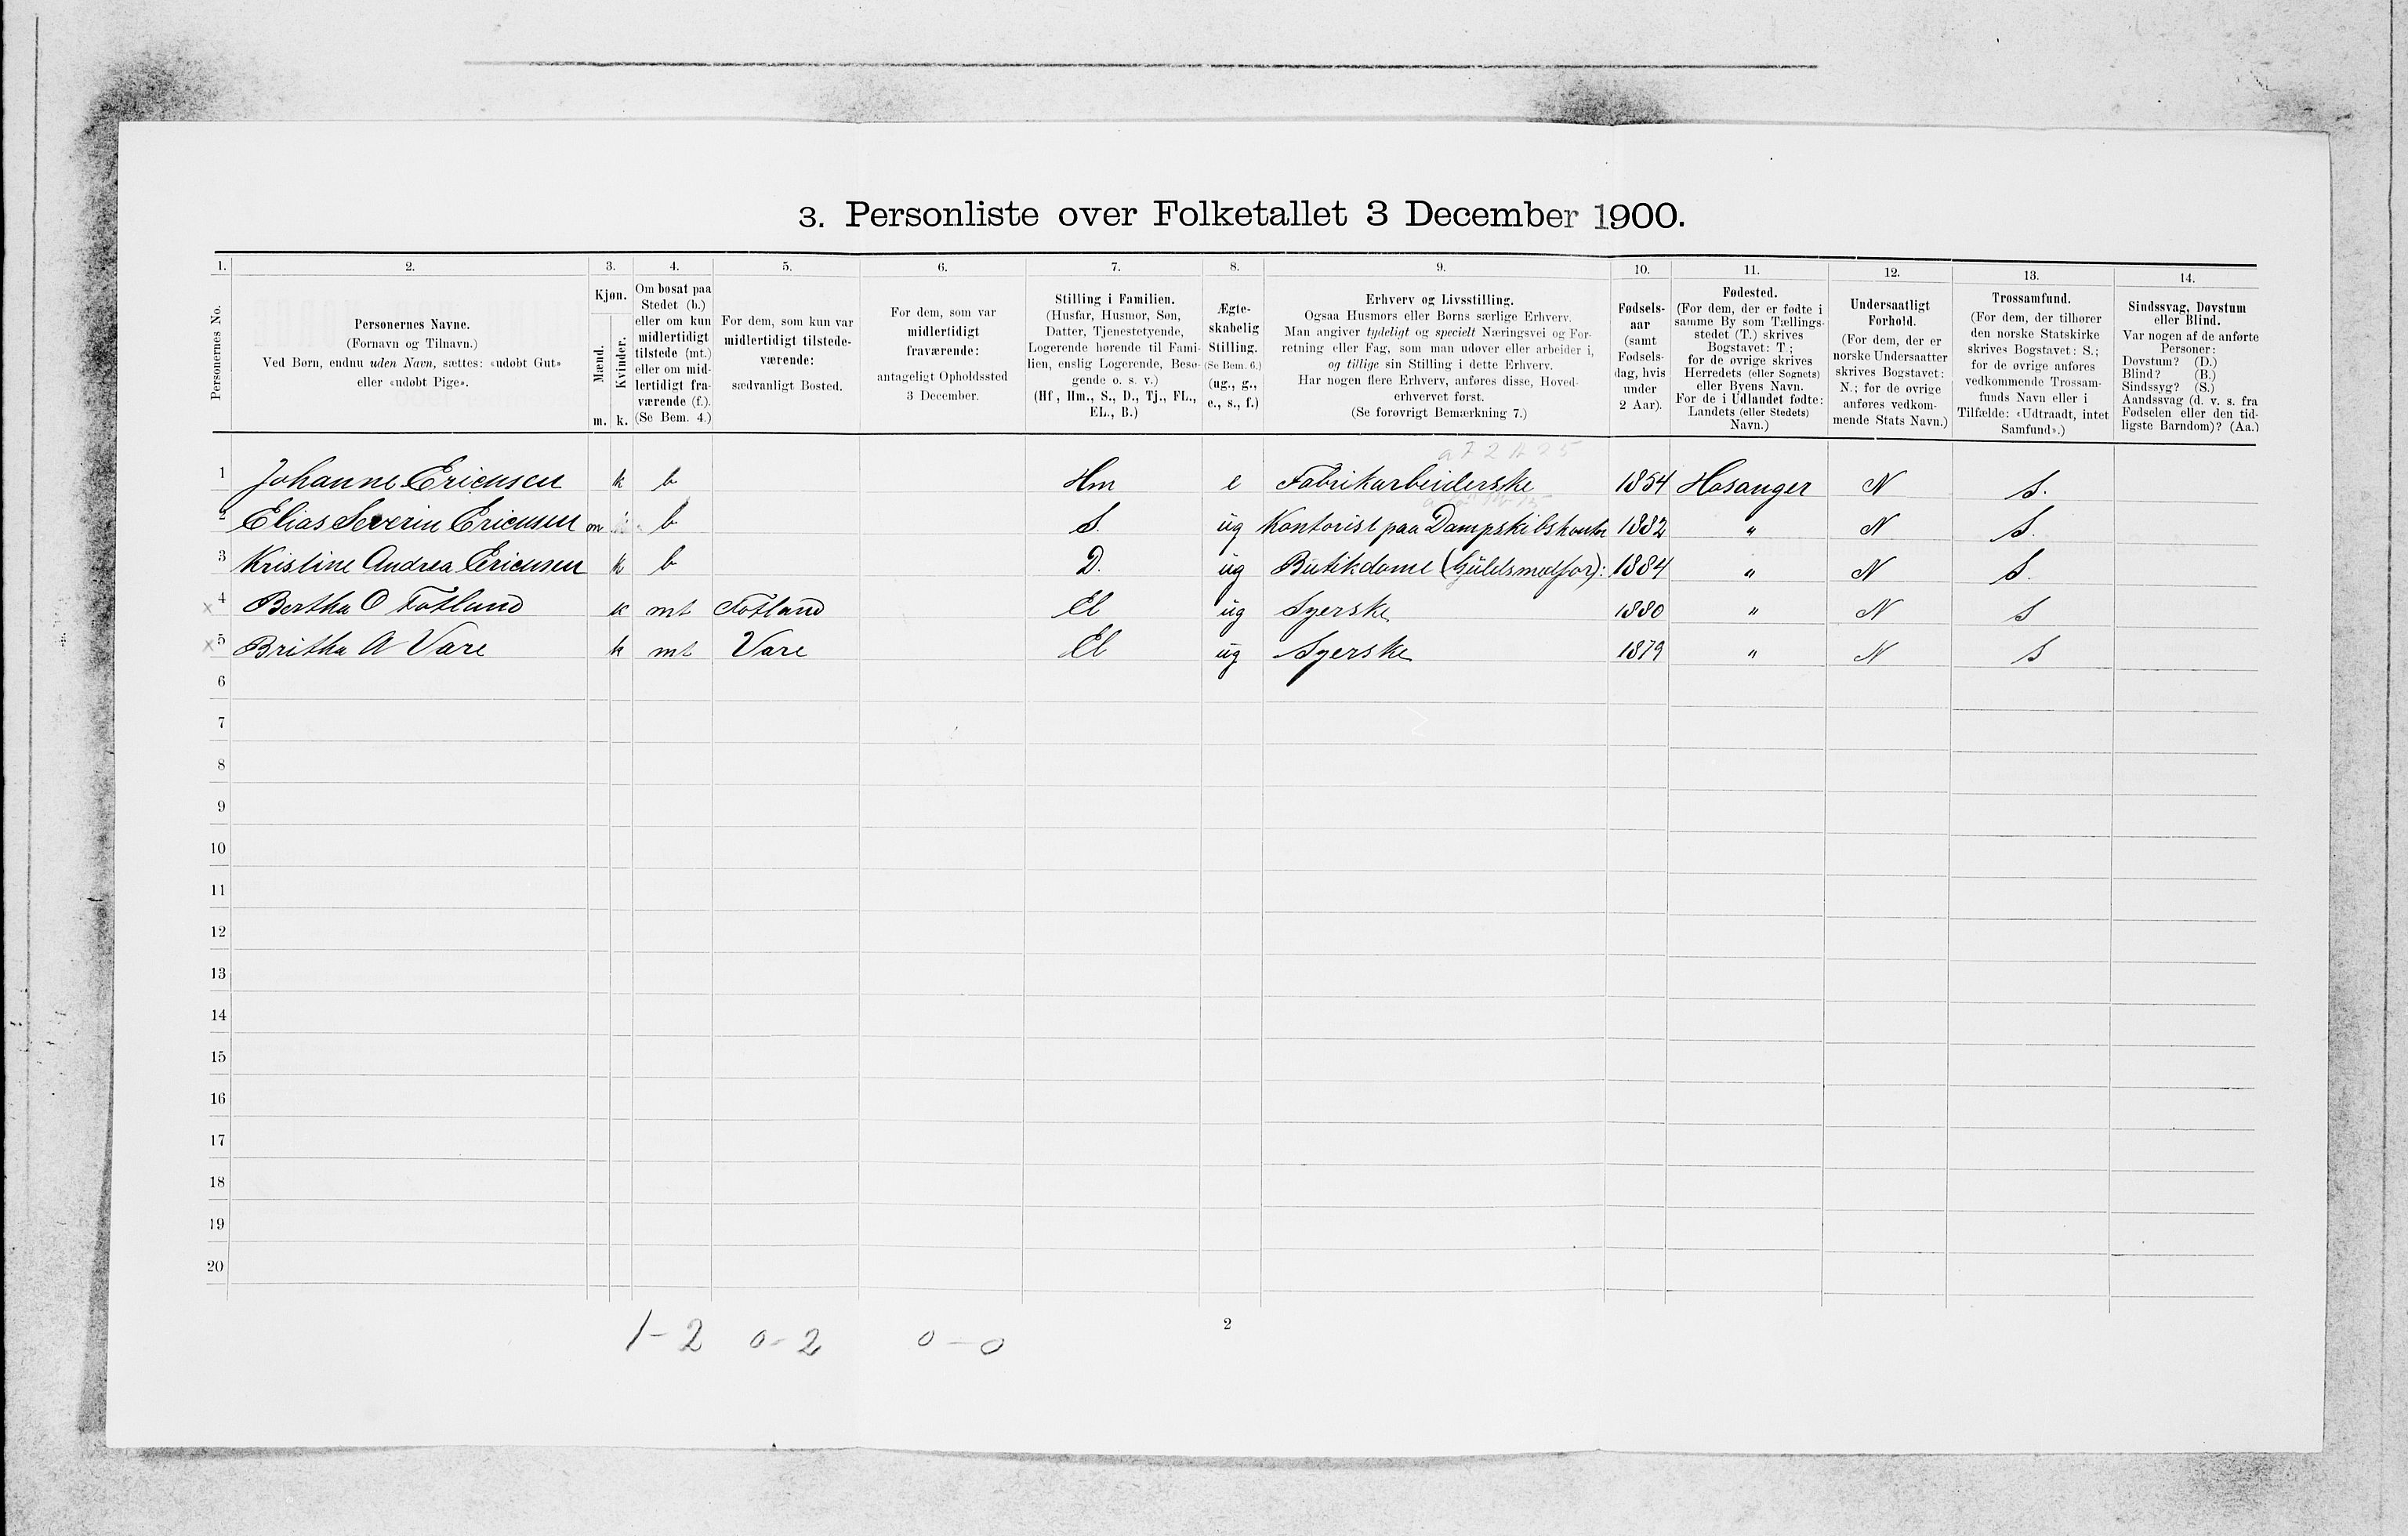 3. Personliste over Folketallet 3 December 1900.
1. 2. 3. 4. 5. 6. 7. 8. 9. 10. 11. 12. 13. 14.
Personernes No.
Personernes Navne.
(Fornavn og Tilnavn.)
Ved Børn, endnu uden Navn, sættes: «udøbt Gut»
eller «udøbt Pige».
Kjøn.
Mænd.
Kvinder.
m. k.
Om bosat paa
Stedet (b.)
eller om kun
midlertidigt
tilstede (mt.)
eller om mid-
lertidigt fra-
værende (f.).
(Se Bem. 4.)
For dem, som kun var
midlertidigt tilstede-
værende:
sædvanligt Bosted.
For dem, som var
midlertidigt
fraværende:
antageligt Opholdssted
3 December.
Stilling i Familien.
(Husfar, Husmor, Søn,
Datter, Tjenestetyende,
Logerende hørende til Fami-
lien, enslig Logerende, Besø-
gende o. s. v.)
(Hf, Hm., S., D., Tj., FL.,
EL., B.)
Ægte-
skabelig
Stilling.
(Se Bem. 6.)
(ug., g.,
e., s., f.)
Erhverv og Livsstilling.
Ogsaa Husmors eller Børns særlige Erhverv.
Man angiver tydeligt og specielt Næringsvei og For-
retning eller Fag, som man udøver eller arbeider i,
og tillige sin Stilling i dette Erhverv.
Har nogen flere Erhverv, anføres disse, Hoved-
erhvervet først.
(Se forøvrigt Bemærkning 7.)
Fødsels-
aar
(samt
Fødsels-
dag, hvis
under
2 Aar).
Fødested.
(For dem, der er fødte i
samme By som Tællings-
stedet (T.) skrives
Bogstavet: T;
for de øvrige skrives
Herredets (eller Sognets)
eller Byens Navn.
For de i Udlandet fødte:
Landets (eller Stedets)
Navn.)
Undersaatligt
Forhold.
(For dem, der er
norske Undersaatter
skrives Bogstavet:
N.; for de øvrige
anføres vedkom-
mende Stats Navn.)
Trossamfund.
(For dem, der tilhører
den norske Statskirke
skrives Bogstavet: S.;
for de øvrige anføres
vedkommende Trossam-
funds Navn eller i
Tilfælde: «Udtraadt, intet
Samfund».)
Sindssvag, Døvstum
eller Blind.
Var nogen af de anførte
Personer:
Døvstum? (D.)
Blind? (B.)
Sindssyg? (S.)
Aandssvag (d. v. s. fra
Fødselen eller den tid-
ligste Barndom)? (Aa.)
1 Johanne Ericusen k b Hm e Fabrikarbeiderske 1854 Hosanger N S.
2 Elias Severin Ericusen m b S. ug Kontorist paa Dampskibskontor 1882 " N S.
3 Kristine Andrea Ericusen k b D. ug Butikdame (Guldsmedfor): 1884 " N S.
x 4 Bertha O Fotland k mt Fotland El ug Syerske 1880 " N S
x 5 Britha A Vare k mt Vare El ug Syerske 1879 " N S
6
7
8
9
10
11
12
13
14
15
16
17
18
19
20
1-2 0-2 0-0
2